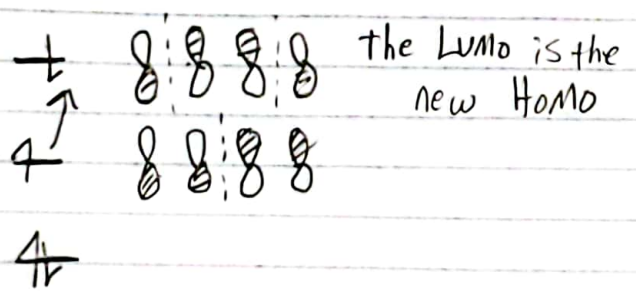 the LUMO is the
new HOMO